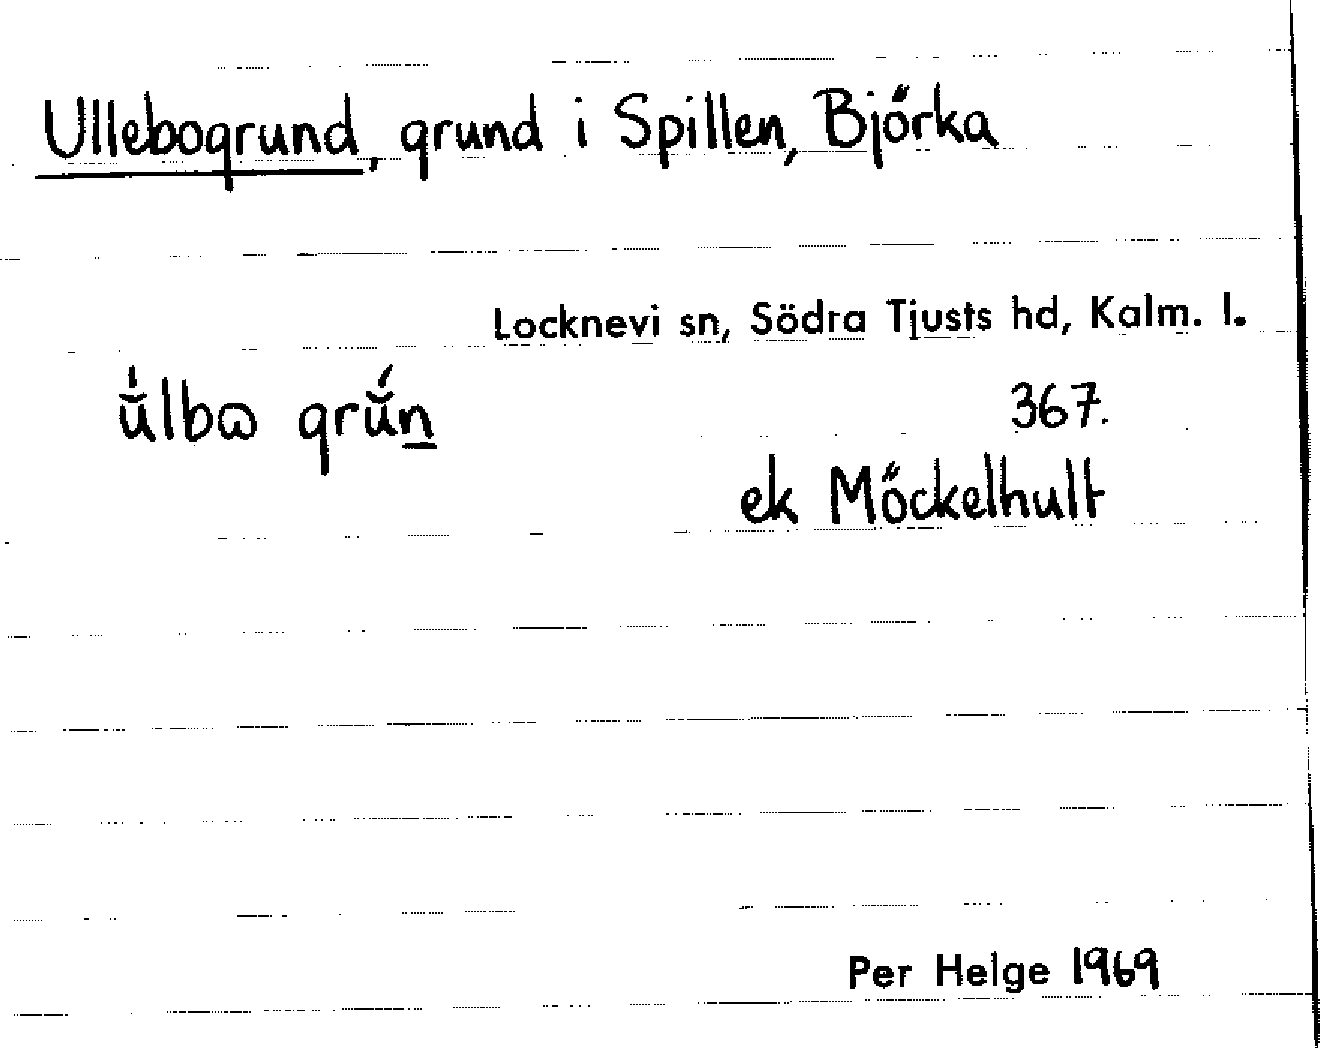 Ullebogrund, grund i Spillen, Björka
Locknevi sn, Södra Tjusts hd, Kalm. l.
ǔ́lbɷ grǔ́n̲
367.
ek Möckelhult
Per Helge 1969